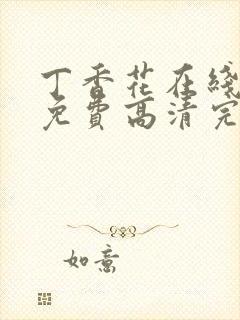 丁香花在綫
免費高清完
如意